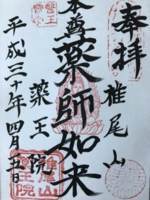 奉拝
椎尾山
本尊
薬師如来
薬王院
平成三十年四月五日